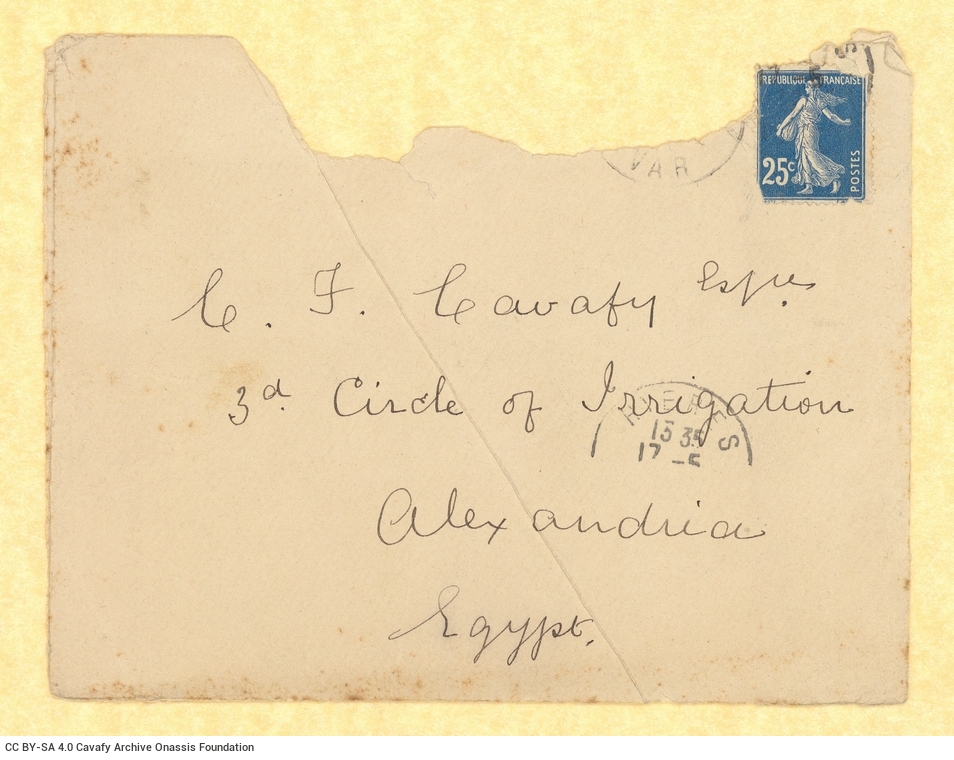 REPUBLIQUE FRANÇAISE
25c
POSTES
VAR
C. F. Cavafy Esqre.
3d. Circle of Irrigation
HYERES
15 35
17 -5
Alexandria
Egypt.
CC BY-SA 4.0 Cavafy Archive Onassis Foundation